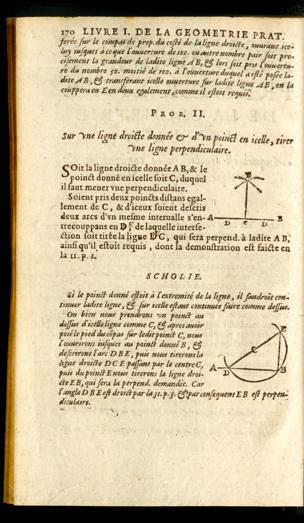 170 LIVRE I. DE LA GEOMETRIE PRAT.
ferée sur le compas de prop. du costé de la ligne droicte, ouurant ice-
luy iusques à ce que l'ouuerture de 100. ou autre nombre pair soit pre-
cisement la grandeur de ladite ligne AB, & lors soit pris l'ouuertu-
re du nombre 50. moitié de 100. à l'ouuerture duquel a esté posée la-
dite AB, & transferant icelle ouuerture sur ladite ligne AB, on la
couppera en E en deux egalement, comme il estoit requis.
PROB. II.
Sur vne ligne droicte donnée & d'vn poinct en icelle, tirer
vne ligne perpendiculaire.
SOit la ligne droicte donnée AB, & le
poinct donné en icelle soit C, duquel
il faut mener vne perpendiculaire.
Soient pris deux poincts distans egal-
lement de C, & d'iceux soient descris
deux arcs d'vn mesme interualle s'en-
trecouppans en D, de laquelle interse-
ction soit tirée la ligne DC, qui sera perpend. à ladite AB,
ainsi qu'il estoit requis, dont la demonstration est faicte en
la 11. p. 1.
A D C E B
SCHOLIE.
Si le poinct donné estoit à l'extremité de la ligne, il faudroit con-
tinuer ladite ligne, & sur icelle estant continuée faire comme dessus.
Ou bien nous prendrons vn poinct au
dessus d'icelle ligne comme C, & apres auoir
posé le pied du cõpas sur ledit poinct C, nous
l'ouurirons iusques au poinct donné B, &
descrirons l'arc DBE, puis nous tirerons la
ligne droicte DCE passant par le centre C,
puis du poinct E nous tirerons la ligne droi-
cte EB, qui sera la perpend. demandée. Car
l'angle DBE est droict par la 31. p. 3. & par consequent EB est perpen-
diculaire.
E
C
A D B